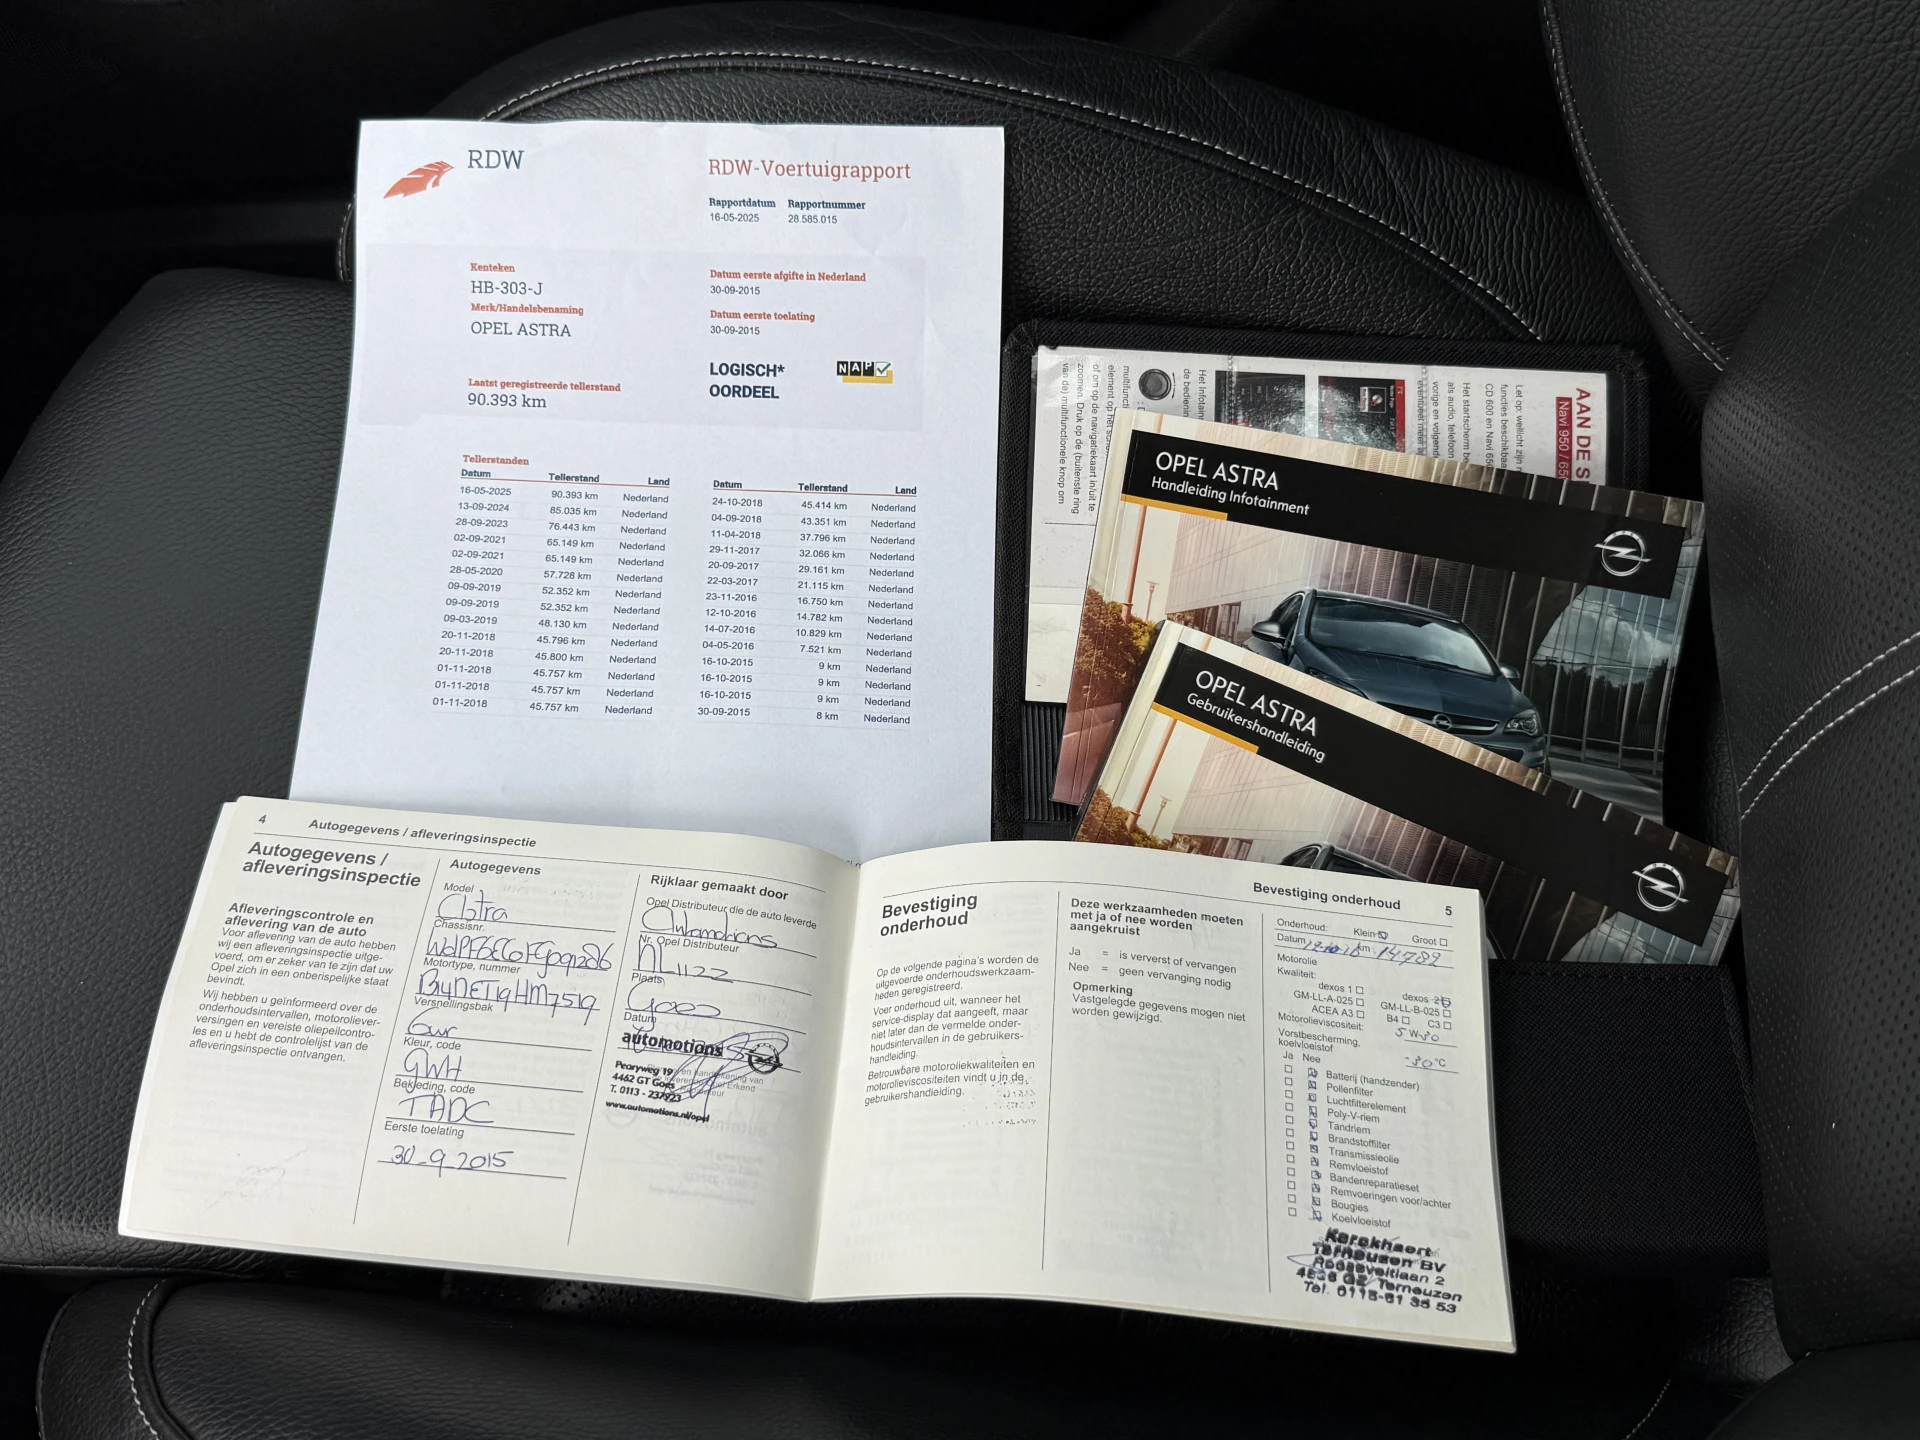 RDW
RDW-Voertuigrapport
Rapportdatum Rapportnummer
16-05-2025 28.585.015
Kenteken
HB-303-J
Merk/Handelsbenaming
OPEL ASTRA
Datum eerste afgifte in Nederland
30-09-2015
Datum eerste toelating
30-09-2015
Laatst geregistreerde tellerstand
90.393 km
LOGISCH*
OORDEEL
NAP
Tellerstanden
Datum Tellerstand Land
16-05-2025 90.393 km Nederland
13-09-2024 85.035 km Nederland
28-09-2023 76.443 km Nederland
02-09-2021 65.149 km Nederland
02-09-2021 65.149 km Nederland
28-05-2020 57.728 km Nederland
09-09-2019 52.352 km Nederland
09-09-2019 52.352 km Nederland
09-03-2019 48.130 km Nederland
20-11-2018 45.796 km Nederland
20-11-2018 45.800 km Nederland
01-11-2018 45.757 km Nederland
01-11-2018 45.757 km Nederland
01-11-2018 45.757 km Nederland
Datum Tellerstand Land
24-10-2018 45.414 km Nederland
04-09-2018 43.351 km Nederland
11-04-2018 37.796 km Nederland
29-11-2017 32.066 km Nederland
20-09-2017 29.161 km Nederland
22-03-2017 21.115 km Nederland
23-11-2016 16.750 km Nederland
12-10-2016 14.782 km Nederland
14-07-2016 10.829 km Nederland
04-05-2016 7.521 km Nederland
16-10-2015 9 km Nederland
16-10-2015 9 km Nederland
16-10-2015 9 km Nederland
30-09-2015 8 km Nederland
AAN DE S
Navi 950 / 65
Let op: wellicht zijn
functies beschikbaa
CD 600 en Navi 650
Het startscherm be
als audio, telefoon
vorige en volgende
Het Infotain
de bedienin
multifunct
element op het
of om op de navigatiekaart in/uit te
zoomen. Druk op de (buitenste ring
van de) multifunctionele knop om
OPEL ASTRA
Handleiding Infotainment
OPEL ASTRA
Gebruikershandleiding
4 Autogegevens / afleveringsinspectie
Autogegevens /
afleveringsinspectie
Afleveringscontrole en
aflevering van de auto
Voor aflevering van de auto hebben
wij een afleveringsinspectie uitge-
voerd, om er zeker van te zijn dat uw
Opel zich in een onberispelijke staat
bevindt.
Wij hebben u geïnformeerd over de
onderhoudsintervallen, motoroliever-
versingen en vereiste oliepeilcontro-
les en u hebt de controlelijst van de
afleveringsinspectie ontvangen.
Autogegevens
Model
Astra
Chassisnr.
Motortype, nummer
Versnellingsbak
Kleur, code
GWH
Bekleding, code
TADC
Eerste toelating
30-9-2015
Rijklaar gemaakt door
Opel Distributeur die de auto leverde
Automotions
Nr. Opel Distributeur
NL1122
Plaats
Goes
Datum
automotions
Pearyweg 19
4462 GT Goes
T. 0113 - 237923
www.automotions.nl/opel
Bevestiging onderhoud 5
Bevestiging
onderhoud
Op de volgende pagina's worden de
uitgevoerde onderhoudswerkzaam-
heden geregistreerd.
Voer onderhoud uit, wanneer het
service-display dat aangeeft, maar
niet later dan de vermelde onder-
houdsintervallen in de gebruikers-
handleiding.
Betrouwbare motoroliekwaliteiten en
motorolieviscositeiten vindt u in de
gebruikershandleiding.
Deze werkzaamheden moeten
met ja of nee worden
aangekruist
Ja = is ververst of vervangen
Nee = geen vervanging nodig
Opmerking
Vastgelegde gegevens mogen niet
worden gewijzigd.
Onderhoud: Klein Groot
Datum 12-10-16 km 14782
Motorolie
Kwaliteit:
dexos 1 dexos 2
GM-LL-A-025 GM-LL-B-025
ACEA A3 B4 C3
Motorolieviscositeit: 5W-30
Vorstbescherming,
koelvloeistof -30°C
Ja Nee
Batterij (handzender)
Pollenfilter
Luchtfilterelement
Poly-V-riem
Tandriem
Brandstoffilter
Transmissieolie
Remvloeistof
Bandenreparatieset
Remvoeringen voor/achter
Bougies
Koelvloeistof
Kerckhaert
Terneuzen BV
Rooseveltlaan 2
Terneuzen